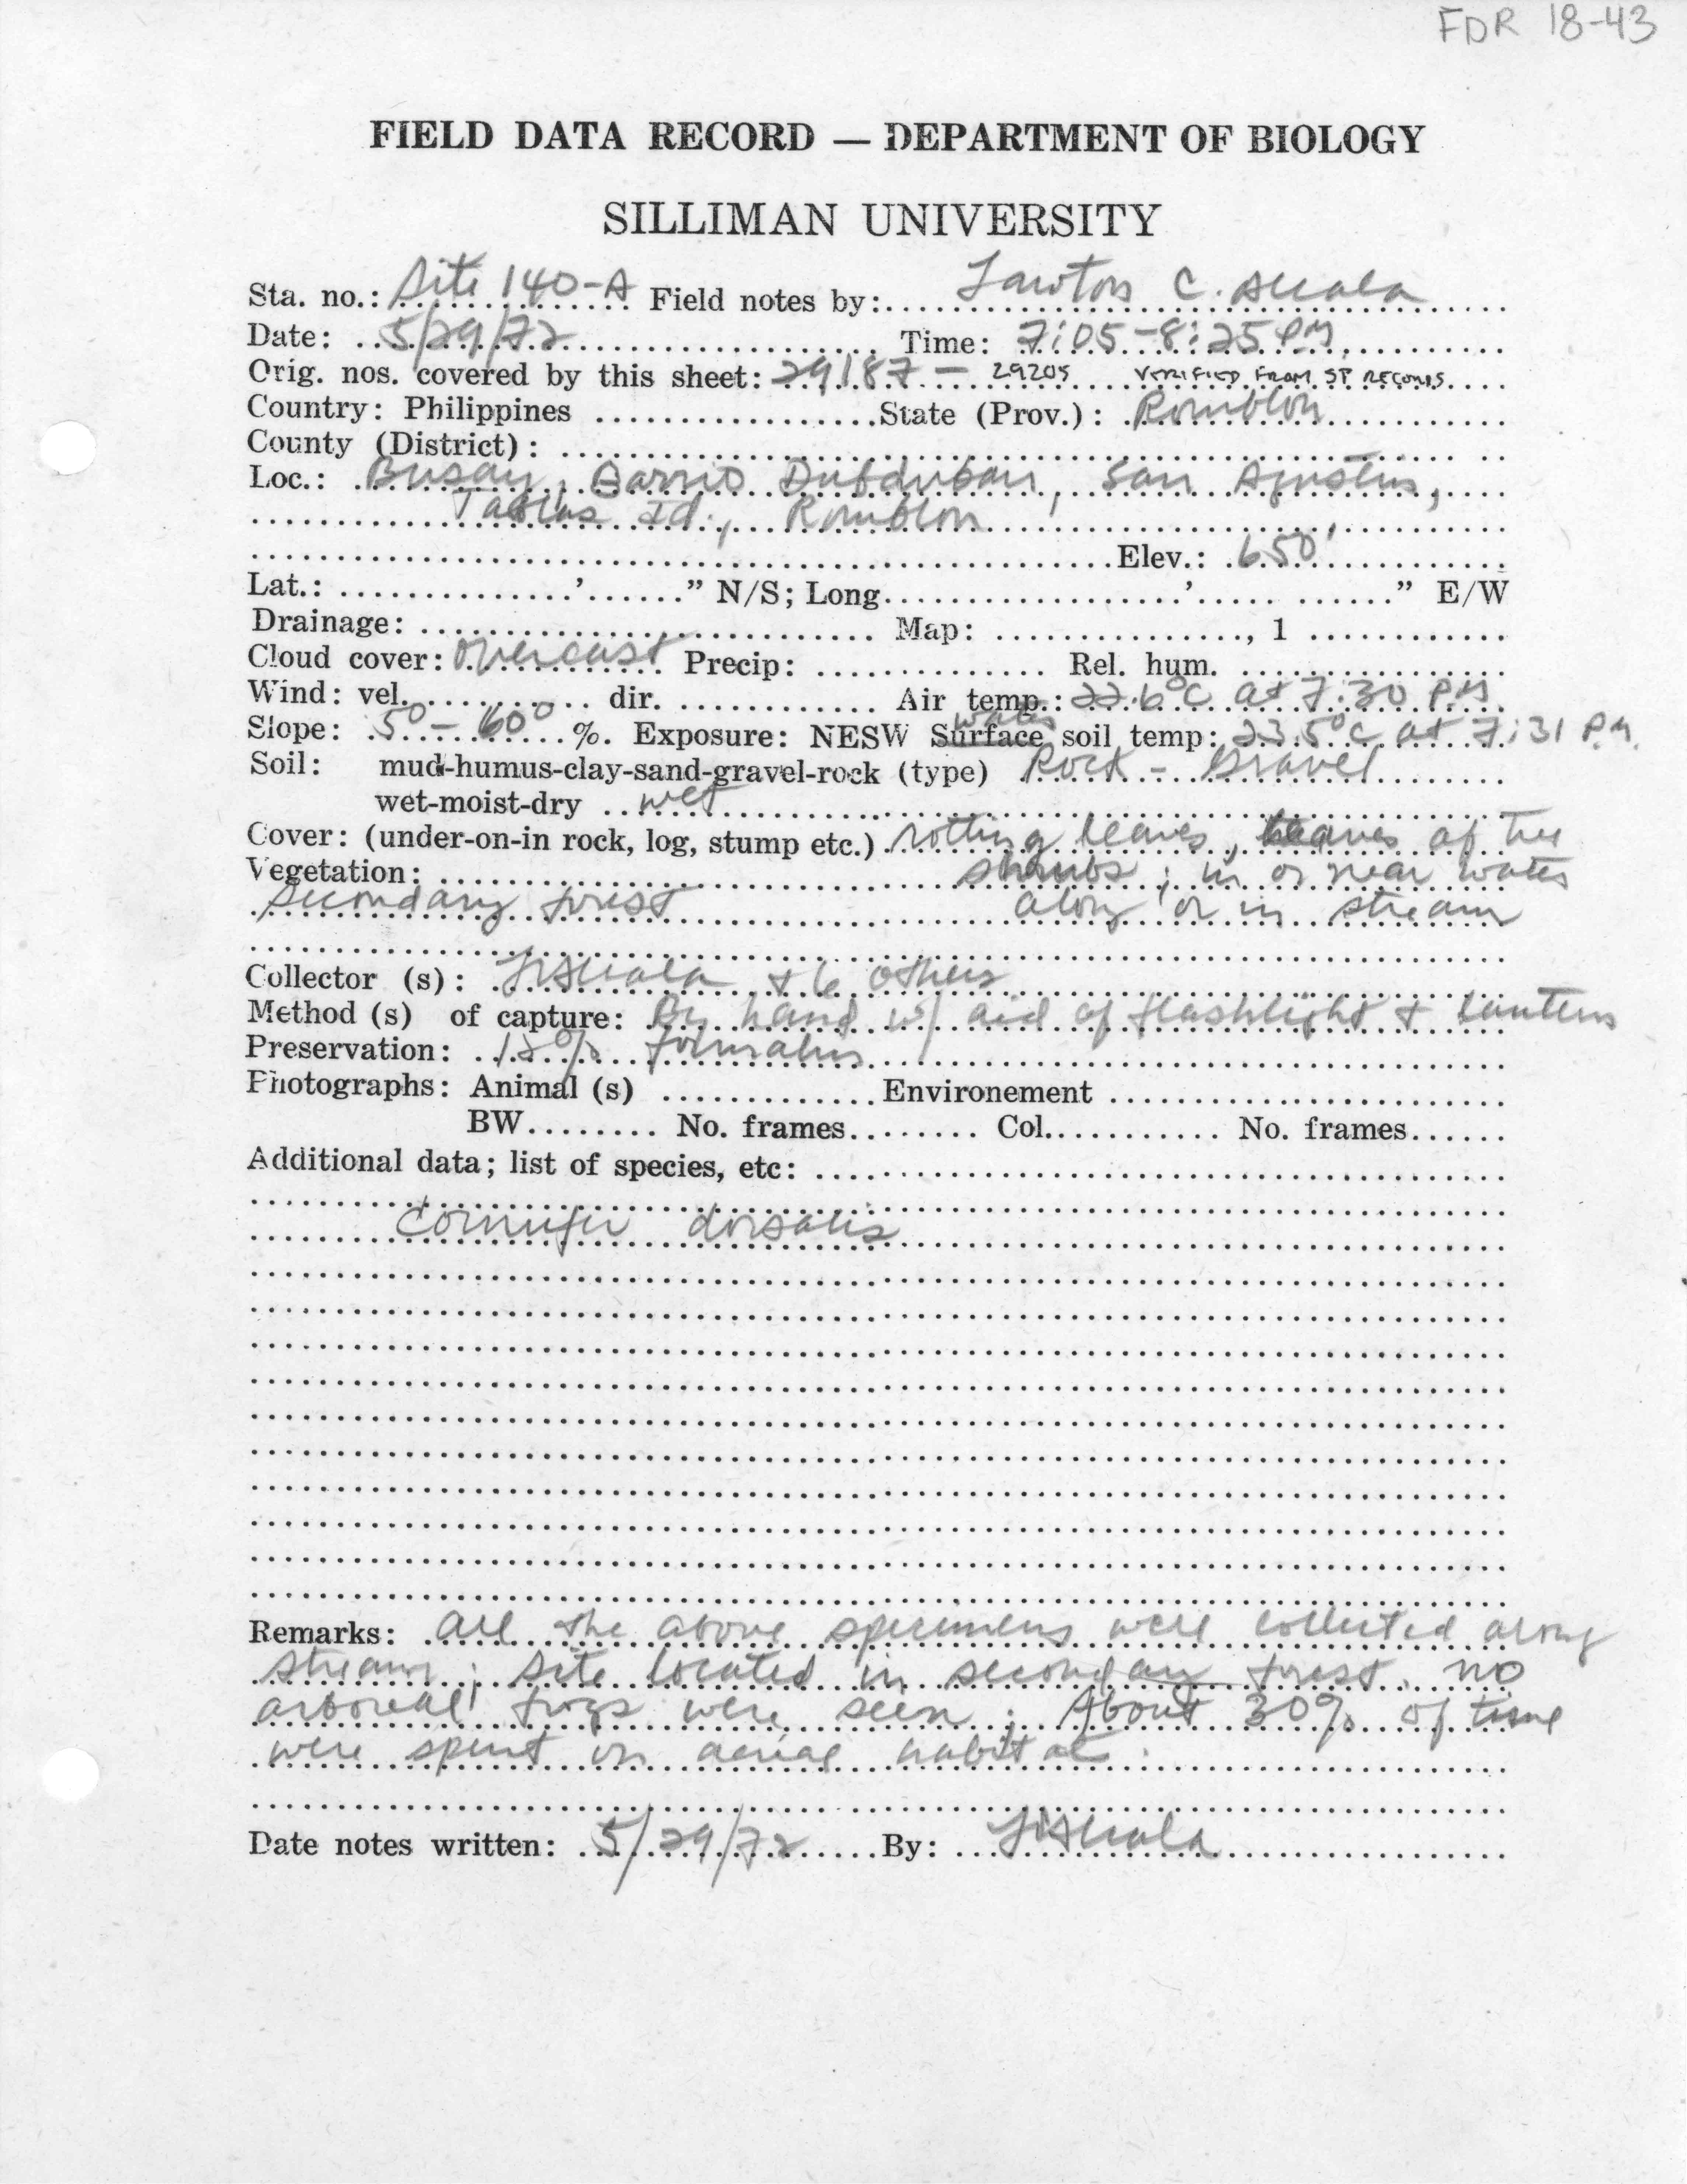 FDR 18-43
FIELD DATA RECORD — DEPARTMENT OF BIOLOGY
SILLIMAN UNIVERSITY
Sta. no.: Site 140-A Field notes by: Lawton C. Alcala
Date: 5/29/72 Time: 7:05-8:25 PM
Orig. nos. covered by this sheet: 29187 - 29205 VERIFIED FROM SP RECORDS
Country: Philippines State (Prov.): Romblon
County (District):
Loc.: Busay, Barrio Dubduban, San Agustin,
Tablas Id., Romblon
Elev.: 650'
Lat.: ' " N/S; Long. ' " E/W
Drainage: Map: , 1
Cloud cover: Overcast Precip: Rel. hum.
Wind: vel. dir. Air temp.: 22.6°C at 7:30 PM
water
Slope: 5° - 60° %. Exposure: NESW Surface soil temp: 23.5°C at 7:31 P.M.
Soil: mud-humus-clay-sand-gravel-rock (type) Rock - Gravel
wet-moist-dry wet
Cover: (under-on-in rock, log, stump etc.) rotting leaves, leaves of tree
Vegetation: shrubs; in or near water
secondary forest along or in stream
Collector (s): LAlcala + 6 others
Method (s) of capture: By hand w/ aid of flashlight + lantern
Preservation: formalin
Photographs: Animal (s) Environement
BW No. frames Col. No. frames
Additional data; list of species, etc:
Cornufer dorsalis
Remarks: All the above specimens were collected along
stream; site located in secondary forest. no
arboreal frogs were seen; About 30% of time
were spent in aerial habitat.
Date notes written: 5/29/72 By: LAlcala